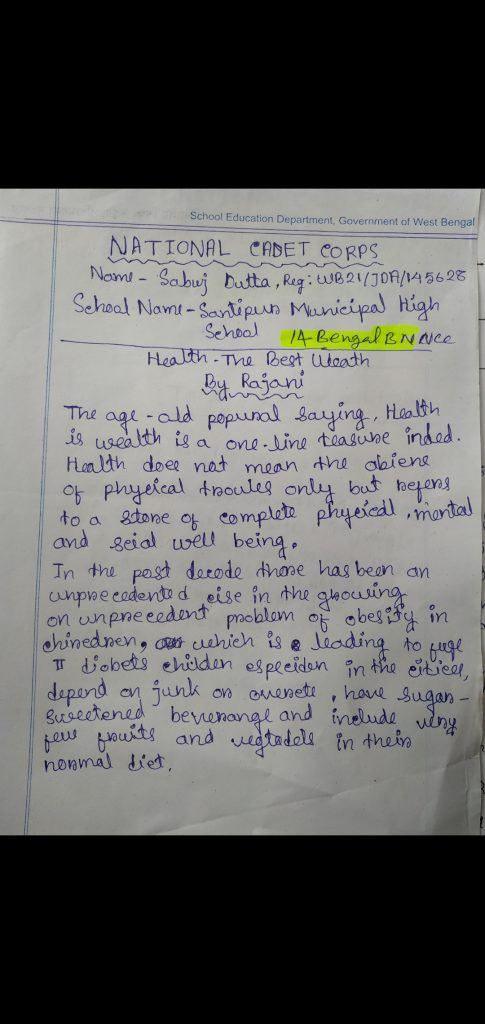 School Education Department, Government of West Bengal
NATIONAL CADET CORPS
Name - Sabuj Dutta, Reg: WB21/JDA/145628
School Name - Santipur Municipal High
School 14-Bengal BN NCC
Health - The Best Weath
By Rajani
The age-old popunal saying, Health
is wealth is a one-line teasure inded.
Health does not mean the abiene
of phyeical troules only but refers
to a stone of complete phyeicall, mental
and seial well being.
In the past decode those has been an
unprecedented eise in the growing
on unprecedent problem of obesity in
chinednen, which is leading to fuge
II diobets childen especiden in the eitices,
depend on junk on overete, have sugar-
sweetened bevenange and include very
few fruits and vegtadels in their
normal diet.